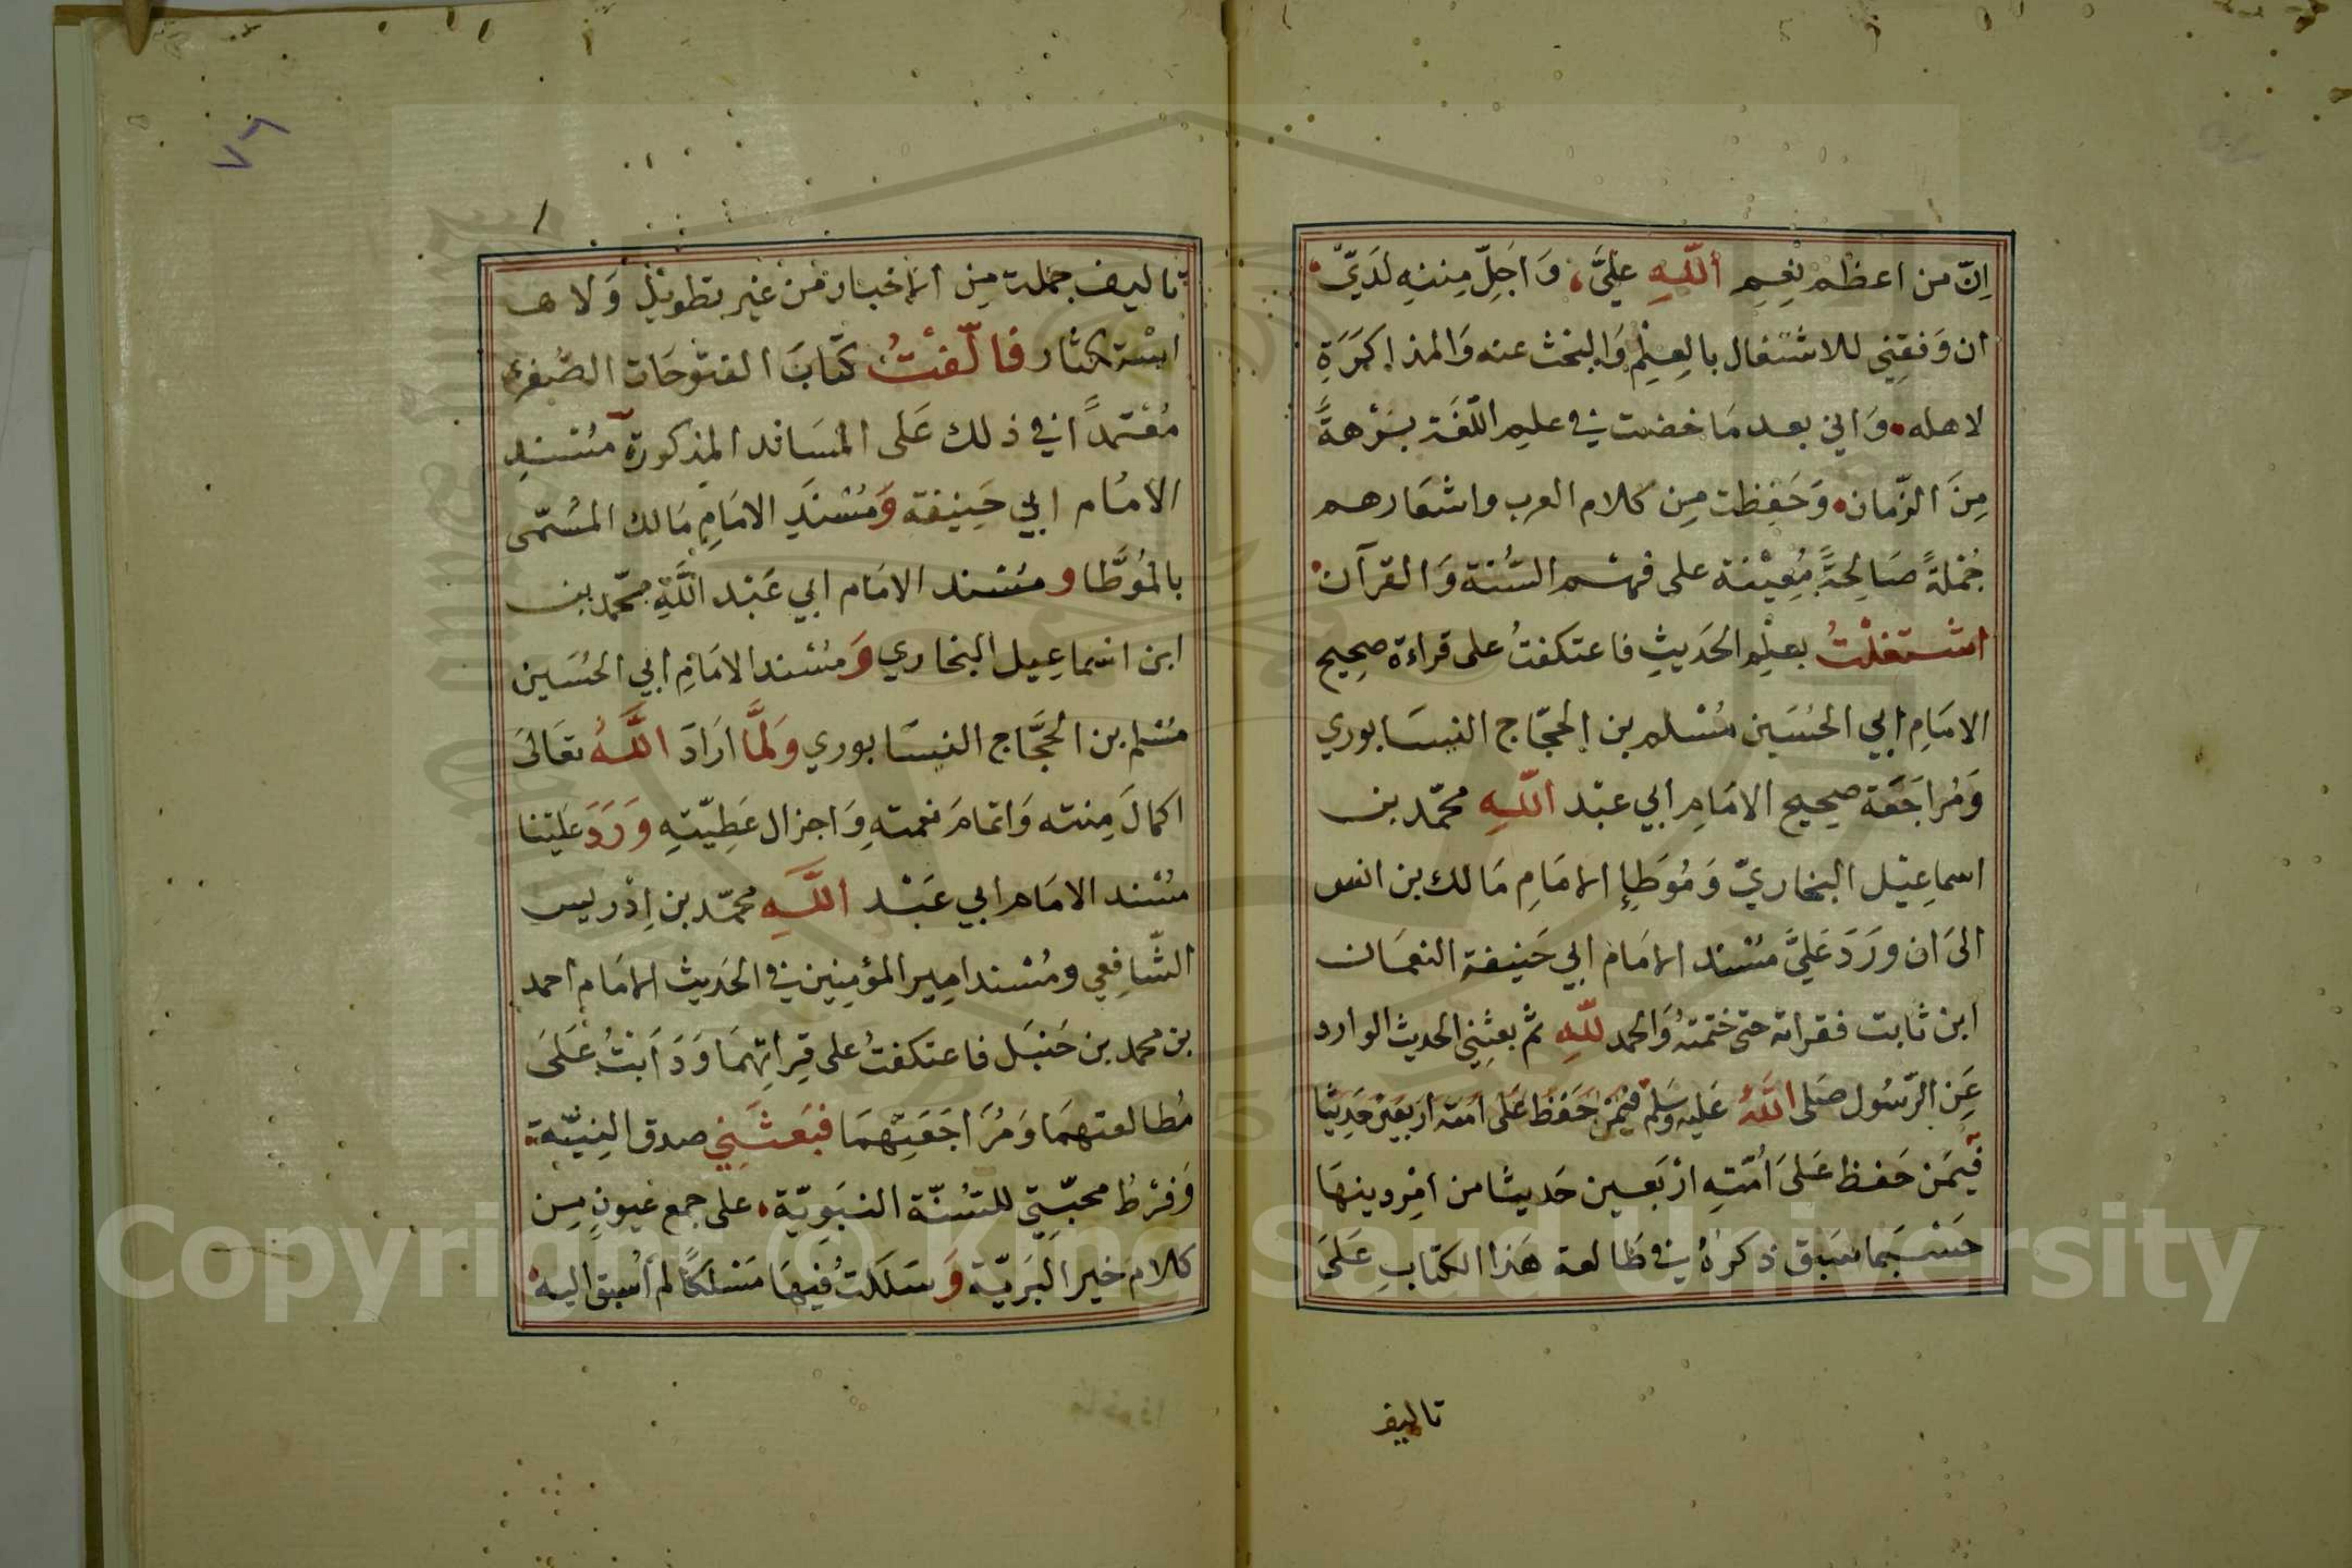 اِنّ من اعظم نِعِمِ اللّهِ عليَّ، وَاَجَلِّ مِننهِ لدَيّ
ان وَفقِني للاشتغال بالعِلِم وَالبحث عنه وَالمذاكرَةِ
لاهله وَاني بعد مَا خضت في علم اللّغَة بُرْهةً
مِنَ الزّمان وَحَفِظت مِن كلام العرب واشعَارهم
جُمْلةً صَالِحةً مُعِيْنة على فهم السُّنة وَالقرآن
اشتغلْتُ بعلِم الحَديثِ فاعتكفتُ على قراءة صحِيح
الامَامِ ابي الحُسَين مُسْلم بن الحجّاج النيسَابوري
وَمُراجَعَة صحِيح الامَامِ ابي عبْد اللّهِ محمّد بن
اسماعِيْل البخاريّ وَمُوَطإِ الامَامِ مَالك بن انس
الىَ ان ورَدَ عَليَّ مسْند الامَام ابي حَنيفة النعمَان
ابن ثابت فقراته حتى ختمتهُ وَالحمد للّهِ ثم بعثِني الحديث الوارد
عَنِ الرّسُول صَلى اللَّهُ عَليه وَسَلم فيمَنْ حَفَظ عَلى امته اربَعينَ حَدِيْثا
فيمَن حَفظ عَلىَ اُمّتهِ ارْبَعين حَديثا من امْر دينهَا
حَسْبمَا سَبَق ذكرهُ في طَالعة هَذا الكتابِ عَلىَ
تاليف
تاليف جملت مِن الاخبار مْن غيْر تطويْل وَلا
اسْتكثار فالّفتُ كتَابَ الفتوحَات الصّغرى
مُعْتمدًا في ذلك عَلى المسَاند المذكورة مُسْندِ
الامَام ابي حَنِيفة وَمُسْندِ الامَامِ مَالك المسُمّى
بالمُوَطَّا ومسْند الامَام ابي عَبْد اللَّهِ محّمد بن
ابن اسْماعِيل البخاري وَمسْند الامَامِ ابي الحُسَين
مسْلم بن الحَجَّاج النيسَابوري وَلَمَّا ارَادَ اللَّهُ تعَالىَ
اكمالَ مِنته وَاتمامَ نعمتهِ وَاجزال عَطِيّتهِ وَرَدَ عَليْنا
مسْند الامَام ابي عَبْد اللَّهِ محمّد بن اِدْريس
الشّافِعي ومُسْند امير المؤمِنِين في الحَديث الامَام احمد
بن محمد بن حَنبَل فاعتكفتُ على قِراتِهمَا وَدَابْتُ عَلىَ
مُطالعتهمَا وَمُرَاجَعَتِهمَا فبَعَثَنِي صدق النِيّة
وَفرْطُ محبّتِي للسُنّة النبَويّة على جمع عُيونٍ مِن
كلام خير البَريّة وَسَلكتُ فيهَا مَسْلكًا لم اُسْبق اليه